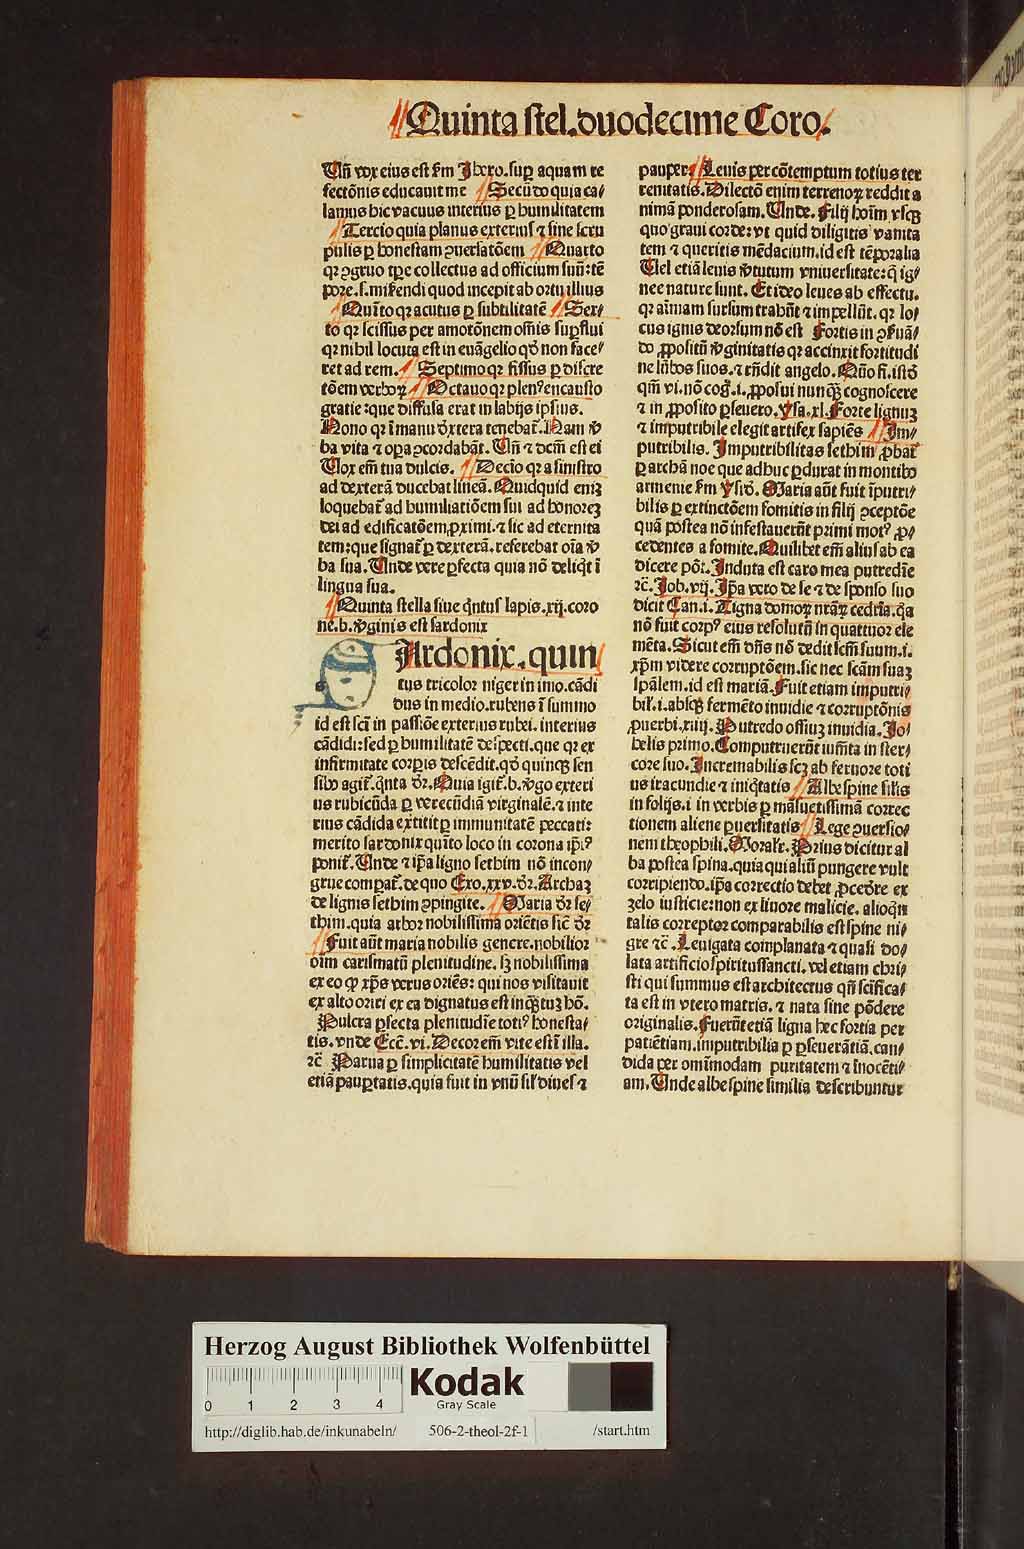 Quinta stel. duodecime Coro.
Uñ vox eius est s̃m Jbero. sup̱ aquam re
fectõnis educauit me Secũdo quia ca⸗
lamus hic vacuus interius p̱ humilitatem
Tercio quia planus exterius ⁊ sine scru
pulis p̱ honestam ꝯuersatõem Quarto
qꝛ ꝯgruo tp̱e collectus ad officium suũ: tẽ
pore .s. mittendi quod incepit ab ortu illius
Quĩto qꝛ acutus p̱ subtilitatẽ Sex⸗
to qꝛ scissus per amotõnem om̃is sup̱flui
qꝛ nihil locuta est in euãgelio qď non face⸗
ret ad rem. Septimo qꝛ fissus p̱ discre
tõem verboꝝ Octauo qꝛ plenꝰ encausto
gratie: que diffusa erat in labijs ipsius.
Nono qꝛ ĩ manu dextera tenebat̃. Nam ṽ
ba vita ⁊ oꝑa ꝯcordabãt. Uñ ⁊ dc̃m est ei
Uox em̃ tua dulcis. Decĩo qꝛ a sinistro
ad dexterã ducebat lineã. Quidquid eniꝫ
loquebat̃ ad humiliatiõem sui ad honoreꝫ
dei ad edificatõem, ꝓximi. ⁊ sic ad eternita
tem: que signat̃ p̱ dexterã. referebat oĩa ṽ
ba sua. Unde vere ꝑfecta quia nõ deliq̃t ĩ
lingua sua.
Quinta stella siue q̃ntus lapis .xij. coro
ne .b. ṽginis est sardonix
SArdonix. quin
tus tricolor niger in imo. cãdi
dus in medio. rubens ĩ summo
id est sc̃i in passiõe exterius rubei. interius
cãdidi: sed p̱ humilitatẽ despecti. que qꝛ ex
infirmitate corpis descẽdit. qď quinqꝫ sen
sibꝰ agit̃. q̃nta dr̃. Quia igit̃ .b. ṽgo exteri
us rubicũda p̱ verecũdiã virginalẽ. ⁊ inte
rius cãdida extitit p̱ immunitatẽ peccati:
merito sardonix quĩto loco in corona ip̃iꝰ
ponit̃. Unde ⁊ ip̃a ligno sethim nõ incon⸗
grue comparat̃. de quo Exo. xxv. dr̃. Archaꝫ
de lignis sethim ꝯpingite. Maria dr̃ se⸗
thim. quia arbor nobilissima oriẽtis sic̃ dr̃
Fuit aũt maria nobilis genere. nobilior
oĩm carismatũ plenitudine. sꝫ nobilissima
ex eo ꝙ xp̃s verus oriẽs: qui nos visitauit
ex alto oriri ex ea dignatus est inq̃tuꝫ hõ.
Pulcra ꝑfecta plenitudĩe totiꝰ honesta⸗
tis. vnde Ecc̃. vi. Decor em̃ vite est ĩ illa.
⁊c̃ Parua p̱ simplicitatẽ humilitatis vel
etiã paup̱tatis. quia fuit in vnũ sil̃ diues ⁊
pauper: Leuis per cõtemptum totius ter
renitatis. Dilectõ enim terrenoꝝ reddit a
nimã ponderosam. Unde. Filij hoĩm vsqꝫ
quo graui corde: vt quid diligitis vanita
tem ⁊ queritis mẽdacium. id est tẽporalia
Uel etiã leuis ṽtutum vniuersitate: q̃ ig⸗
nee nature sunt. Et ideo leues ab effectu.
qꝛ aĩmam sursum trahũt ⁊ impellũt. qꝛ lo⸗
cus ignis deorsum nõ est Fortis in ꝯseruã⸗
do ꝓpositũ ṽginitatis qꝛ accinxit fortitudi
ne lũbos suos. ⁊ rñdit angelo. Quõ fi. istď
qm̃ vi. nõ cog̃. i. ꝓposui nunqꝫ cognoscere
⁊ in ꝓposito ꝑseuero. Ysa. xl. Forte lignuꝫ
⁊ imputribile elegit artifex sapiẽs Im⸗
putribilis. Imputribilitas sethim ꝓbat̃
p̱ archam noe que adhuc ꝑdurat in montibꝰ
armenie s̃m ysid̃. Maria aũt fuit ĩputri⸗
bilis p̱ extinctõem fomitis in filij ꝯceptõe
quã postea nõ infestauerũt primi motꝰ ꝓ⸗
cedentes a fomite. Quilibet em̃ alius ab ea
dicere põt: Induta est caro mea putredĩe
⁊c̃. Job. vij. Ip̃a vero de se ⁊ de sponso suo
dicit Can. i. Tigna domoꝝ nr̃aꝝ cedrĩa. q̃a
nõ fuit corpꝰ eius resolutũ in quattuor ele
mẽta. Sicut em̃ dñs nõ dedit sc̃m suum. i.
xp̃m videre corruptõem. sic nec sc̃am suaꝫ
sp̃alem. id est mariã. Fuit etiam imputri⸗
bil̃. i. absqꝫ fermẽto inuidie ⁊ corruptõnis
ꝓuerbi. xiiij. Putredo ossiuꝫ inuidia. Jo⸗
helis primo. Computruerũt iumẽta in ster⸗
core suo. Incremabilis scꝫ ab feruore toti
us iracundie ⁊ iniq̃tatis Albe spine sil̃is
in folijs. i. in verbis p̱ mãsuetissimã correc
tionem aliene p̱uersitatis Lege ꝯuersio⸗
nem theophili. Moral̃r. Prius dicitur al
ba postea spina. quia qui aliũ pungere vult
corripiendo. ip̃a correctio debet ꝓcedere ex
zelo iusticie: non ex liuore malicie. alioq̃n
talis correptor comparabilis est spine ni⸗
gre ⁊c̃. Leuigata complanata ⁊ quasi do⸗
lata artificio spiritussancti. vel etiam chri⸗
sti qui summus est architectus qñ sc̃ifica⸗
ta est in vtero matris. ⁊ nata sine põdere
originalis. Fuerũt etiã ligna hec fortia per
patiẽtiam. imputribilia p̱ p̱seuerãtiã. can⸗
dida per omĩmodam puritatem ⁊ ĩnocẽti⸗
am. Unde albe spine similia describuntur
Herzog August Bibliothek Wolfenbüttel
0 1 2 3 4
Kodak
Gray Scale
http://diglib.hab.de/inkunabeln/ 506-2-theol-2f-1 /start.htm